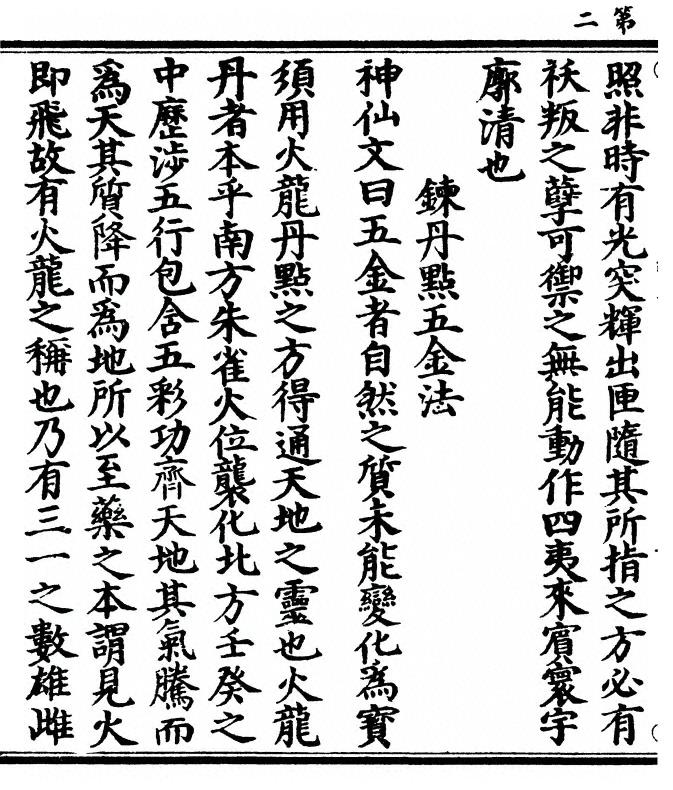 第二
照非時有光突輝出匣隨其所指之方必有
祅叛之孽可禦之無能動作四夷來賓寰宇
廓清也
鍊丹點五金法
神仙文曰五金者自然之質未能變化爲寳
須用火龍丹點之方得通天地之靈也火龍
丹者本乎南方朱雀火位襲化北方壬癸之
中歷涉五行包含五彩功齊天地其氣騰而
爲天其質降而爲地所以至藥之本謂見火
即飛故有火龍之稱也乃有三一之數雄雌